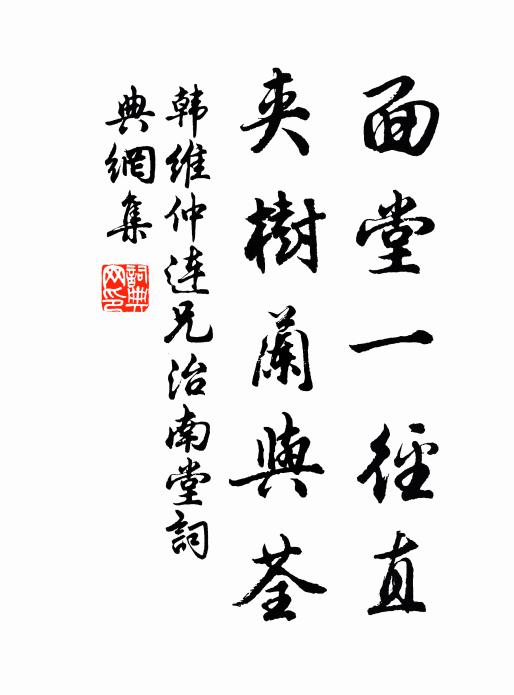 面堂一徑直
夾樹蘭與荃
韩維仲連兄治南堂詞
典網集
詞典网印